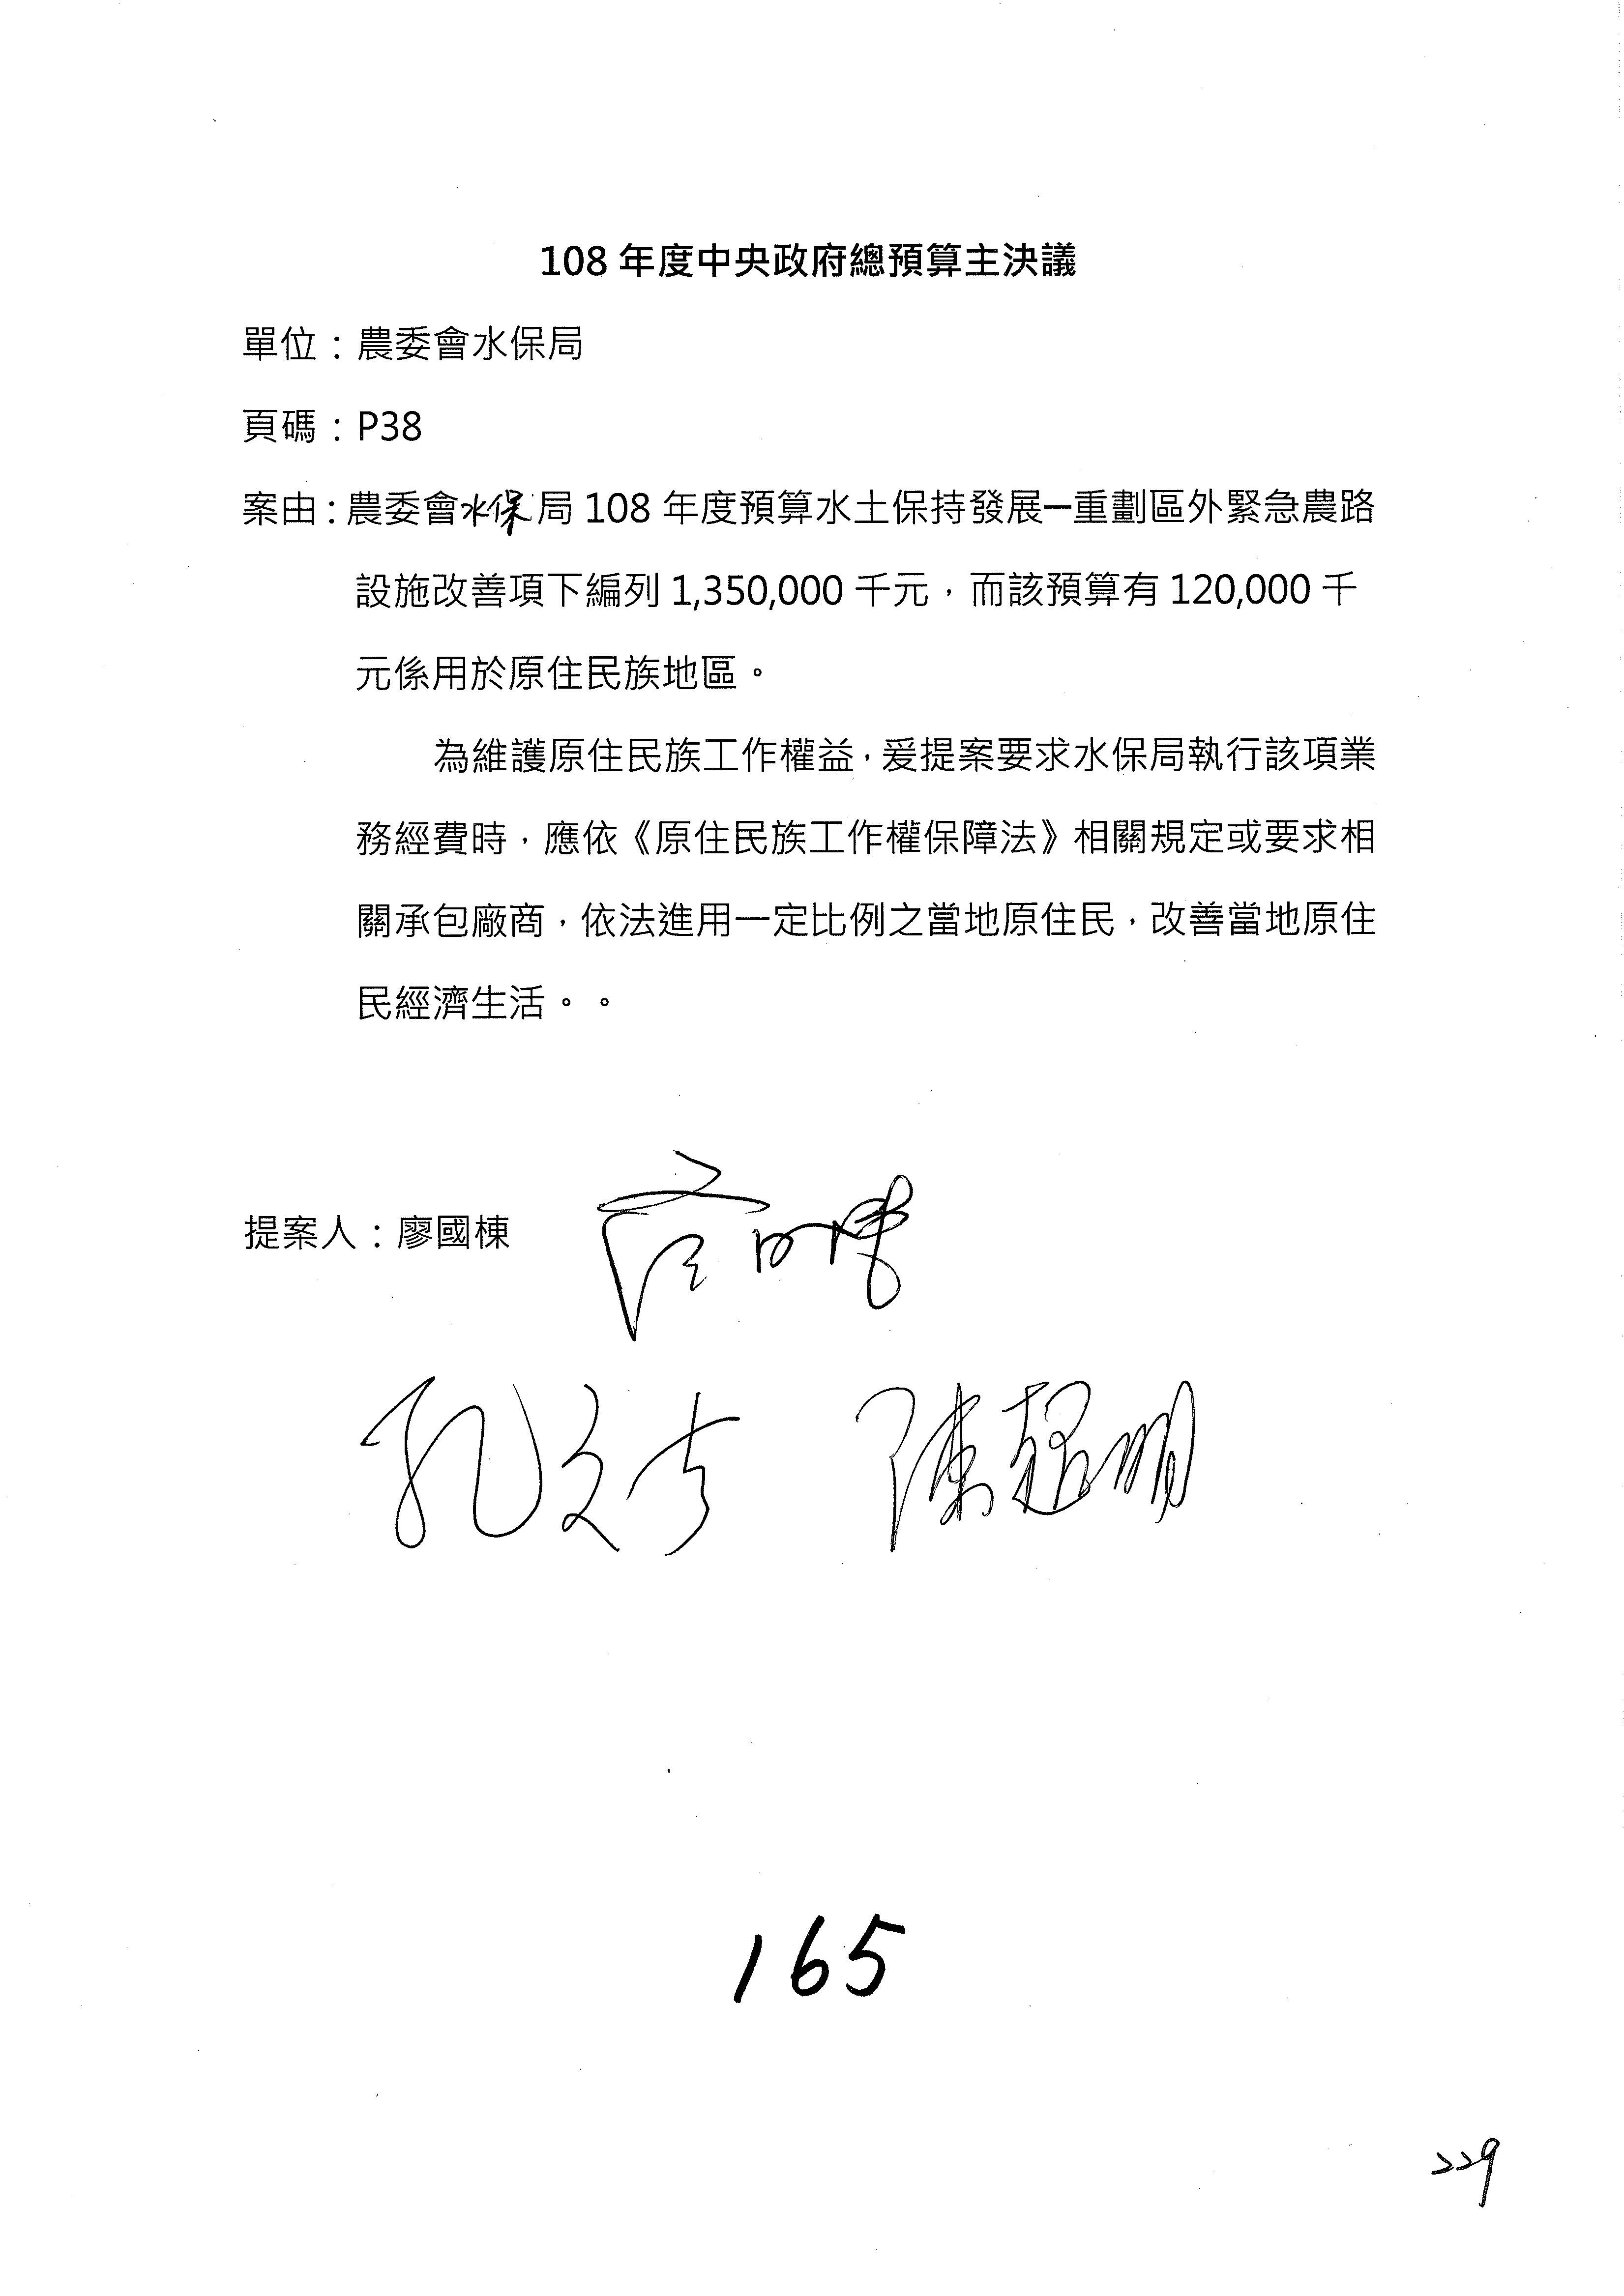 108 年度中央政府總預算主決議
單位：農委會水保局
頁碼：P38
案由：農委會水保局 108 年度預算水土保持發展─重劃區外緊急農路
設施改善項下編列 1,350,000 千元，而該預算有 120,000 千
元係用於原住民族地區。
為維護原住民族工作權益，爰提案要求水保局執行該項業
務經費時，應依《原住民族工作權保障法》相關規定或要求相
關承包廠商，依法進用一定比例之當地原住民，改善當地原住
民經濟生活。。
提案人：廖國棟 廖国棟
孔文吉 陳超明
165
229